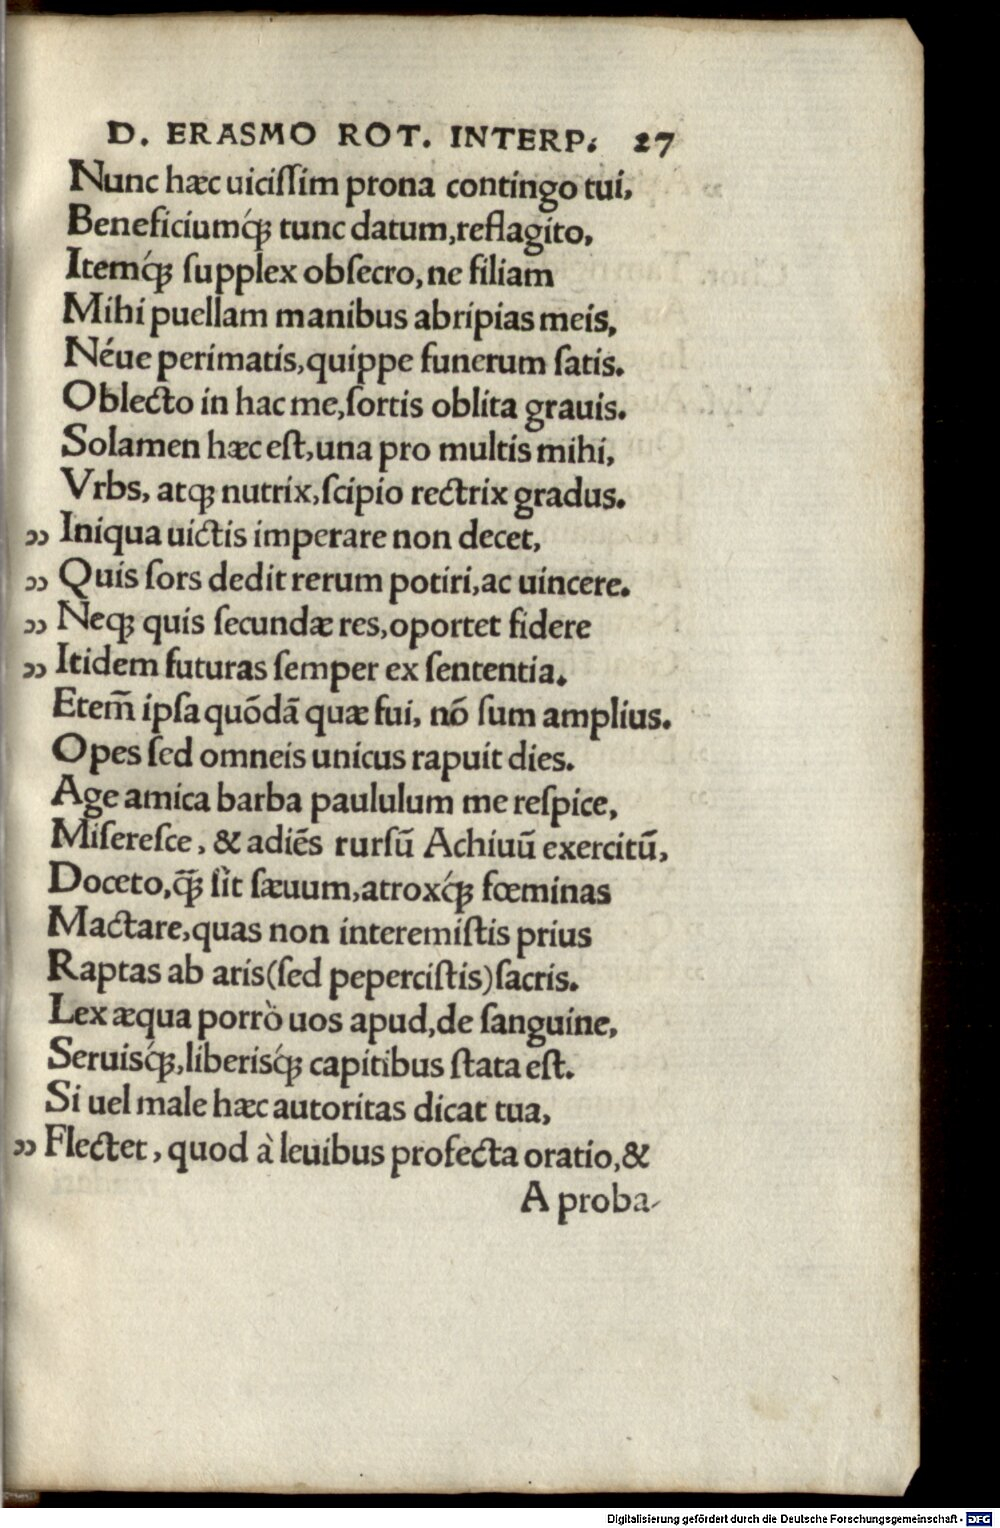 D. ERASMO ROT. INTERP. 27
Nunc hæc uiciſſim prona contingo tui,
Beneficiumq́ꝫ tunc datum,reflagito,
Itemq́ꝫ ſupplex obſecro, ne filiam
Mihi puellam manibus abripias meis,
Néue perimatis,quippe funerum ſatis.
Oblecto in hac me,ſortis oblita grauis.
Solamen hæc eſt,una pro multis mihi,
Vrbs, atqꝫ nutrix,ſcipio rectrix gradus.
„ Iniqua uictis imperare non decet,
„ Quis ſors dedit rerum potiri,ac uincere.
„ Neqꝫ quis ſecundæ res,oportet fidere
„ Itidem futuras ſemper ex ſententia.
Etem̃ ipſa quõdã quæ fui, nõ ſum amplius.
Opes ſed omneis unicus rapuit dies.
Age amica barba paululum me reſpice,
Miſereſce, & adiẽs rurſũ Achiuũ exercitũ,
Doceto,q̃ꝫ ſit ſæuum,atroxq́ꝫ fœminas
Mactare,quas non interemiſtis prius
Raptas ab aris(ſed peperciſtis)ſacris.
Lex æqua porrò uos apud,de ſanguine,
Seruisq́ꝫ,liberisq́ꝫ capitibus ſtata eſt.
Si uel male hæc autoritas dicat tua,
„ Flectet, quod à leuibus profecta oratio,&
A proba-
Digitalisierung gefördert durch die Deutsche Forschungsgemeinschaft - DFG